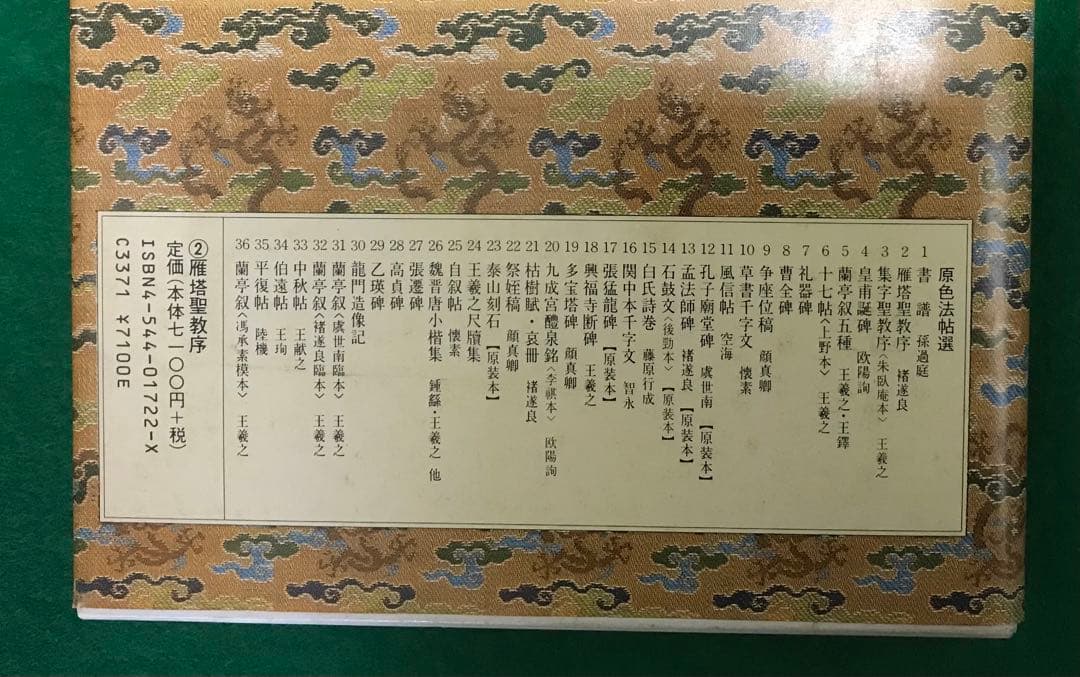 原色法帖選
1 書譜 孫過庭
2 雁塔聖教序 褚遂良
3 集字聖教序〈朱臥庵本〉 王羲之
4 皇甫誕碑 欧陽詢
5 蘭亭叙五種 王羲之・王鐸
6 十七帖〈上野本〉 王羲之
7 礼器碑
8 曹全碑
9 争座位稿 顔真卿
10 草書千字文 懐素
11 風信帖 空海
12 孔子廟堂碑 虞世南【原装本】
13 孟法師碑 褚遂良【原装本】
14 石鼓文〈後勁本〉【原装本】
15 白氏詩巻 藤原行成
16 関中本千字文 智永
17 張猛龍碑【原装本】
18 興福寺断碑 王羲之
19 多宝塔碑 顔真卿
20 九成宮醴泉銘〈李祺本〉 欧陽詢
21 枯樹賦・哀冊 褚遂良
22 祭姪稿 顔真卿
23 泰山刻石【原装本】
24 王羲之尺牘集
25 自叙帖 懐素
26 魏晋唐小楷集 鍾繇・王羲之 他
27 張遷碑
28 高貞碑
29 乙瑛碑
30 龍門造像記
31 蘭亭叙〈虞世南臨本〉 王羲之
32 蘭亭叙〈褚遂良臨本〉 王羲之
33 中秋帖 王献之
34 伯遠帖 王珣
35 平復帖 陸機
36 蘭亭叙〈馮承素模本〉 王羲之
②雁塔聖教序
定価(本体七一〇〇円+税)
ISBN4-544-01722-X
C3371 ¥7100E